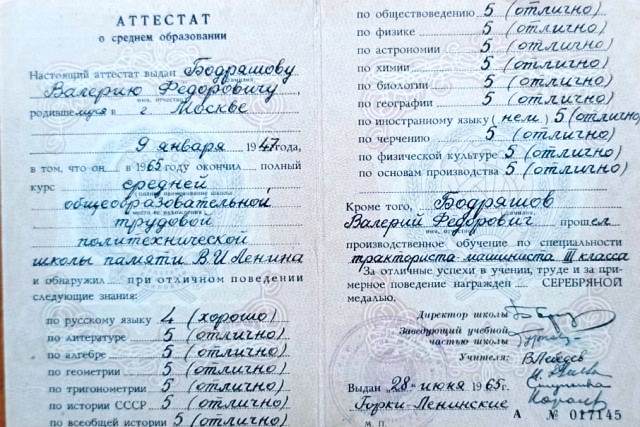 АТТЕСТАТ
о среднем образовании
Настоящий аттестат выдан Бодряшову
Валерию Федоровичу,
родившемуся в г. Москве
9 января 1947 года,
в том, что он в 1965 году окончил полный
курс средней
общеобразовательной
трудовой
политехнической
школы памяти В.И. Ленина
и обнаружил при отличном поведении
следующие знания:
по русскому языку 4 (хорошо)
по литературе 5 (отлично)
по алгебре 5 (отлично)
по геометрии 5 (отлично)
по тригонометрии 5 (отлично)
по истории СССР 5 (отлично)
по всеобщей истории 5 (отлично)
по обществоведению 5 (отлично)
по физике 5 (отлично)
по астрономии 5 (отлично)
по химии 5 (отлично)
по биологии 5 (отлично)
по географии 5 (отлично)
по иностранному языку (нем.) 5 (отлично)
по черчению 5 (отлично)
по физической культуре 5 (отлично)
по основам производства 5 (отлично)
Кроме того, Бодряшов
Валерий Федорович прошел
производственное обучение по специальности
тракториста-машиниста III класса
За отличные успехи в учении, труде и за при-
мерное поведение награжден СЕРЕБРЯНОЙ
медалью.
Директор школы
Заведующий учебной
частью школы
Учителя:
Выдан „28" июня 1965г.
Горки-Ленинские
А № 017145
М. П.